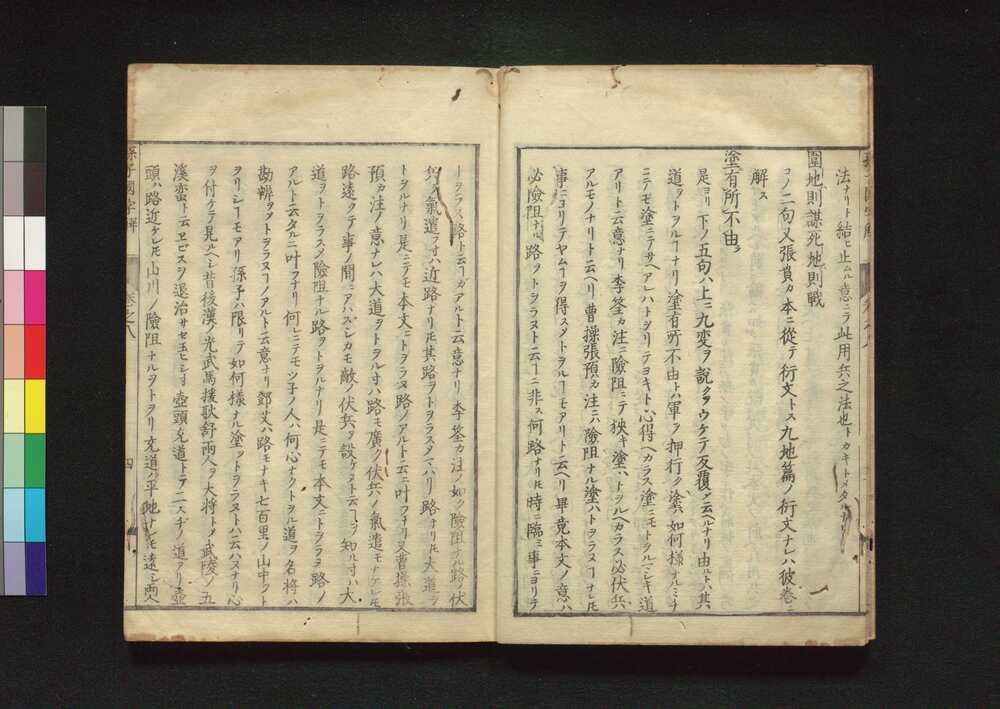 法ナリト結ヒ止ムル意ニテ此用兵之法也トカキトメタルナリ
圍地則謀死地則戰
コノ二句又張賁カ本ニ從テ衍文トス九地篇ノ衍文ナレハ彼巻ニ
解ス
塗有所不由
是ヨリ下ノ五句ハ上ニ九変ヲ說クヲウケテ反覆メ云ヘルナリ由ルトハ其
道ヲトヲルヿナリ塗有所不由トハ軍ヲ押行ク塗ハ如何様ナルミチ
ニテモ塗ニテサヘアレハトヲリテヨキト心得ヘカラス塗ニモトヲルマシキ道
アリト云意ナリ李筌カ注ニ險阻ニテ狹キ塗ハトヲルヘカラス必伏兵
アルモノナリト云ヘリ曹操張預カ注ニハ險阻ナル塗ハトヲラヌヿナレ𪜈
事ニヨリテヤムヿヲ得スメトヲルヿモアリト云ヘリ畢竟本文ノ意ハ
必險阻ナル路ヲトヲラヌト云ヿニ非ス何路ナリ𪜈時ニ臨ミ事ニヨリテ
トヲラヌ路ト云ヿガアルト云意ナリ李筌カ注ノ如ク險阻ナル路ノ伏
兵ノ氣遣ヲ寸ハ近路ナリ𪜈其路ヲトヲラスタマハリ路ナリ𪜈大道ヲ
トヲルナリ是ニテモ本文ニトヲラヌ路ノアルト云ニ叶フナリ又曹操張
預カ注ノ意ナレハ大道ヲトヲル寸ハ路モ廣ク伏兵ノ氣遣モナケレ𪜈
路遠クテ事ノ間ニアハズシカモ敵ノ伏兵ヲ設ケヌト云ヿヲ知ル寸ハ大
道ヲトヲラスメ險阻ナル路ヲトヲルナリ是ニテモ本文ニトヲラヌ路ノ
アルト云タルニ叶フナリ何レニテモツ子ノ人ハ何心ナクトヲル道ヲ名将ハ
勘辨ヲメトヲラヌヿノアルト云意ナリ鄧艾ハ路モナキ七百里ノ山中ヲト
ヲリシヿモアリ孫子ハ限リテ如何様ナル塗ヲトヲラヌトハ云ハヌナリ心
ヲ付ケテ見ルヘシ昔後漢ノ光武馬援耿舒兩人ヲ大将トメ武陵ノ五
溪蛮ト云ヱビスシヲ退治サセ玉ヒシ寸壺頭充道トテ二スヂノ道アリ壺
頭ハ路近ケレ𪜈山川ノ險阻ナルヲトヲリ充道ハ平地ナレ𪜈遠シ兩人
孫子國字解
卷之八
四